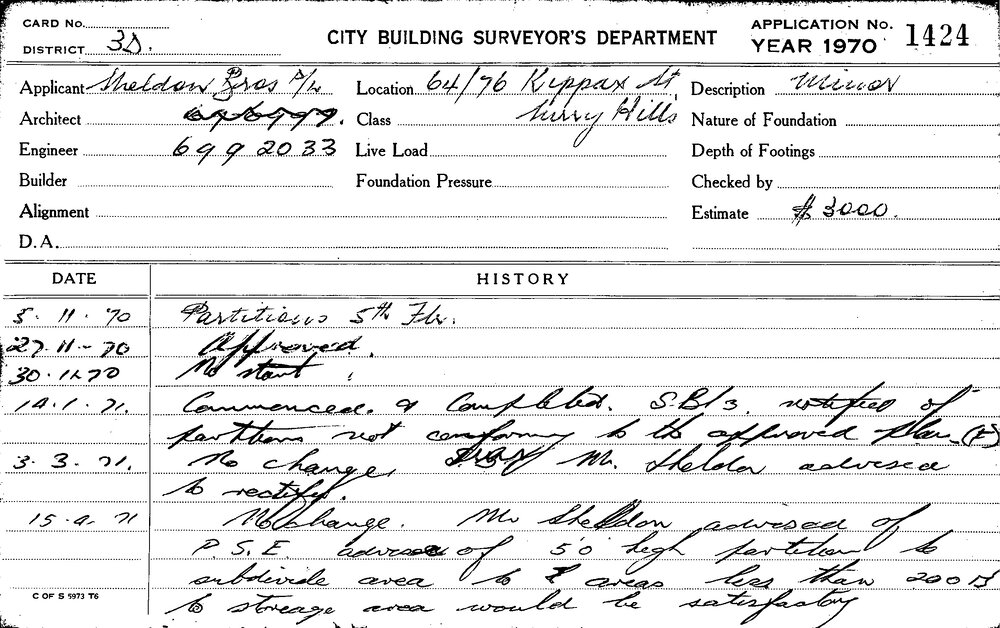 CARD No.
DISTRICT 3D.
CITY BUILDING SURVEYOR'S DEPARTMENT
APPLICATION No. 1424
YEAR 1970
Applicant Sheldon Bros P/L Location 64/76 Kippax St, Description Minor
Architect Class Surry Hills Nature of Foundation
Engineer 699 2033 Live Load Depth of Footings
Builder Foundation Pressure Checked by
Alignment Estimate $3000.
D.A.
DATE HISTORY
5.11.70 Partitions 5th Flr.
27.11.70 Approved.
30.11.70 No start.
14.1.71. Commenced. & Completed. S.B/3. notified of
partitions not conforming to the approved plan.
3.3.71. No change, Mr. Sheldon advised
to rectify.
15.4.71 No change. Mr Sheldon advised of
P.S.E. advised of 5'0" high partition to
subdivide area to 2 areas less than 200
to storeage area would be satisfactory
C OF S 5973 T6